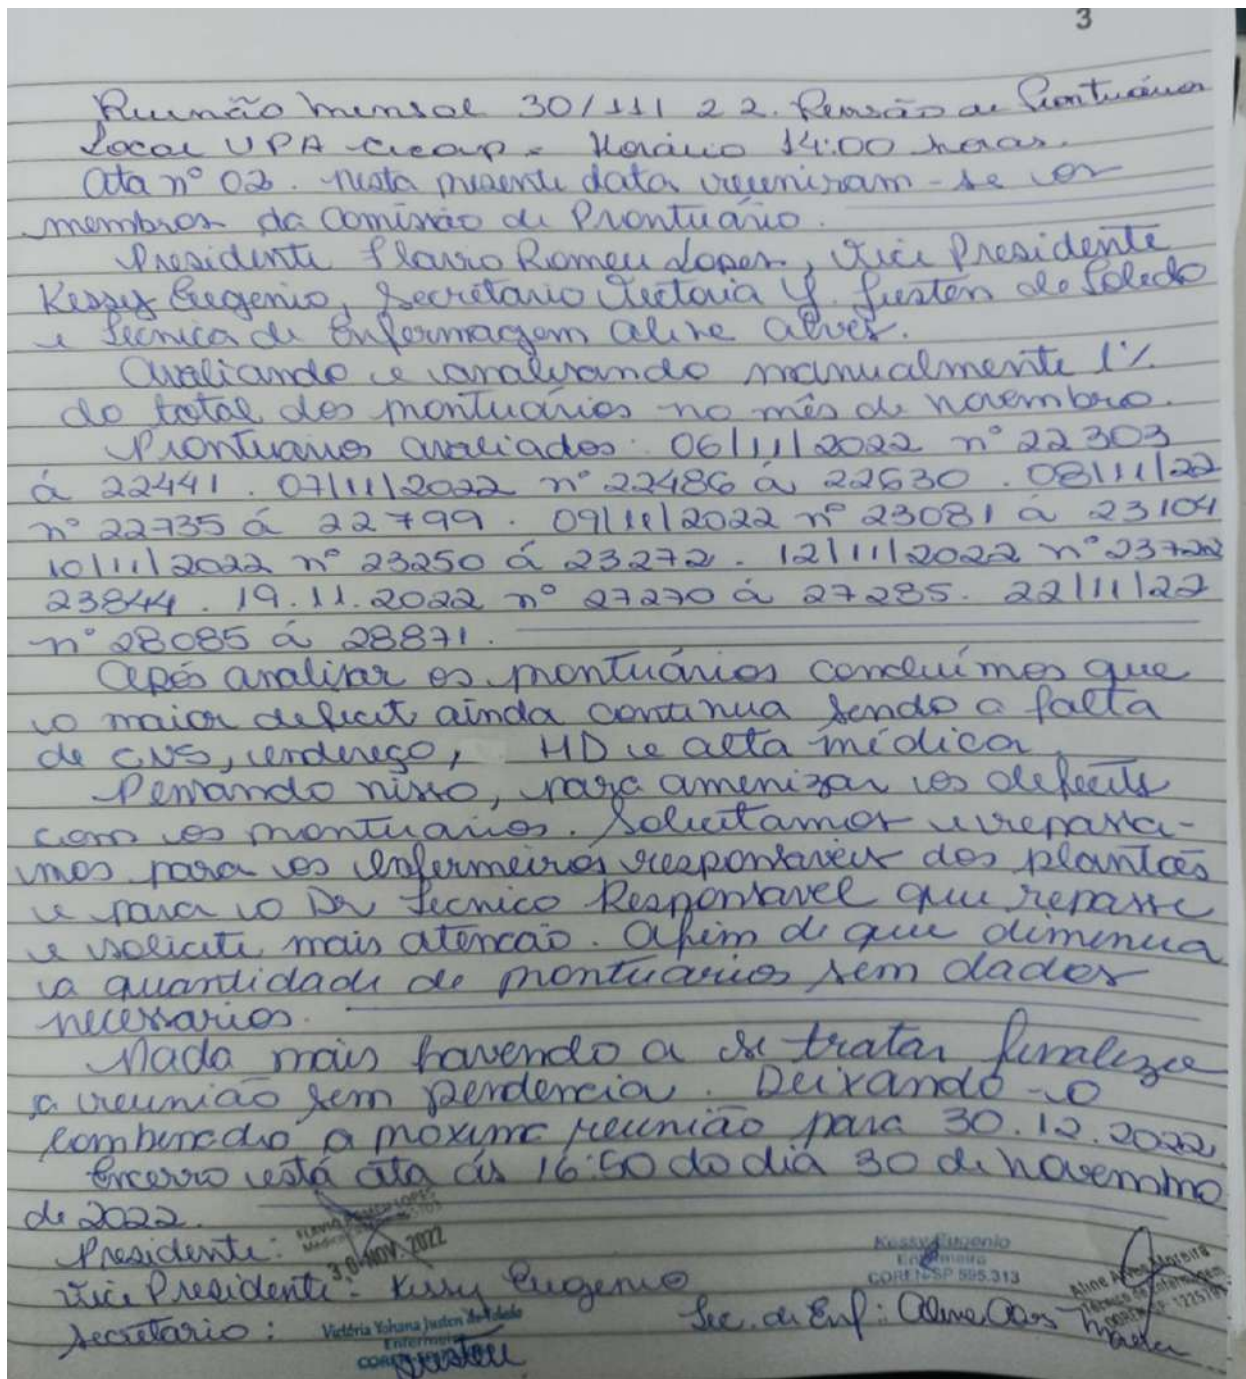 3
Reunião mensal 30/11/22. Revisão de Prontuários
Local UPA - Horário 14:00 horas.
Ata nº 02. nesta presente data reuniram-se os
membros da Comissão de Prontuário.
Presidente Flavio Romeu Lopes, Vice Presidente
Kessy Eugenio, Secretário Victoria Y. Justen de Toledo
e Técnica de Enfermagem Aline Alves.
Avaliando e analisando manualmente 1%
do total dos prontuários no mês de novembro.
Prontuarios avaliados: 06/11/2022 nº 22303
á 22441. 07/11/2022 nº 22486 a 22630. 08/11/22
nº 22735 á 22799. 09/11/2022 nº 23081 a 23104
10/11/2022 nº 23250 á 23272. 12/11/2022 nº 23722
23844. 19.11.2022 nº 27270 a 27285. 22/11/22
nº 28085 á 28871.
Após analisar os prontuários concluímos que
o maior deficit ainda continua sendo a falta
de CNS, endereço, HD e alta médica.
Pensando nisso, para amenizar os deficits
com os prontuarios. Solicitamos e repassa-
mos para os enfermeiros responsaveis dos plantões
e para o Dr Tecnico Responsavel que repasse
e solicite mais atencão. Afim de que diminua
a quantidade de prontuarios sem dados
necessarios.
Nada mais havendo a se tratar finalizo
a reunião sem pendencia. Deixando-o
combinado a proxima reunião para 30.12.2022
Encerro está ata ás 16:50 do dia 30 de novembro
de 2022.
Presidente: 30 NOV. 2022
Vice Presidente - Kessy Eugenio
Kessy Eugenio
Enfermeira
COREN-SP 595.313
Secretario: Victória Yohana Justen de Toledo
Enfermeira
Justen
Tec. de Enf: Aline Alves
Aline Alves Moreira
Técnica de Enfermagem